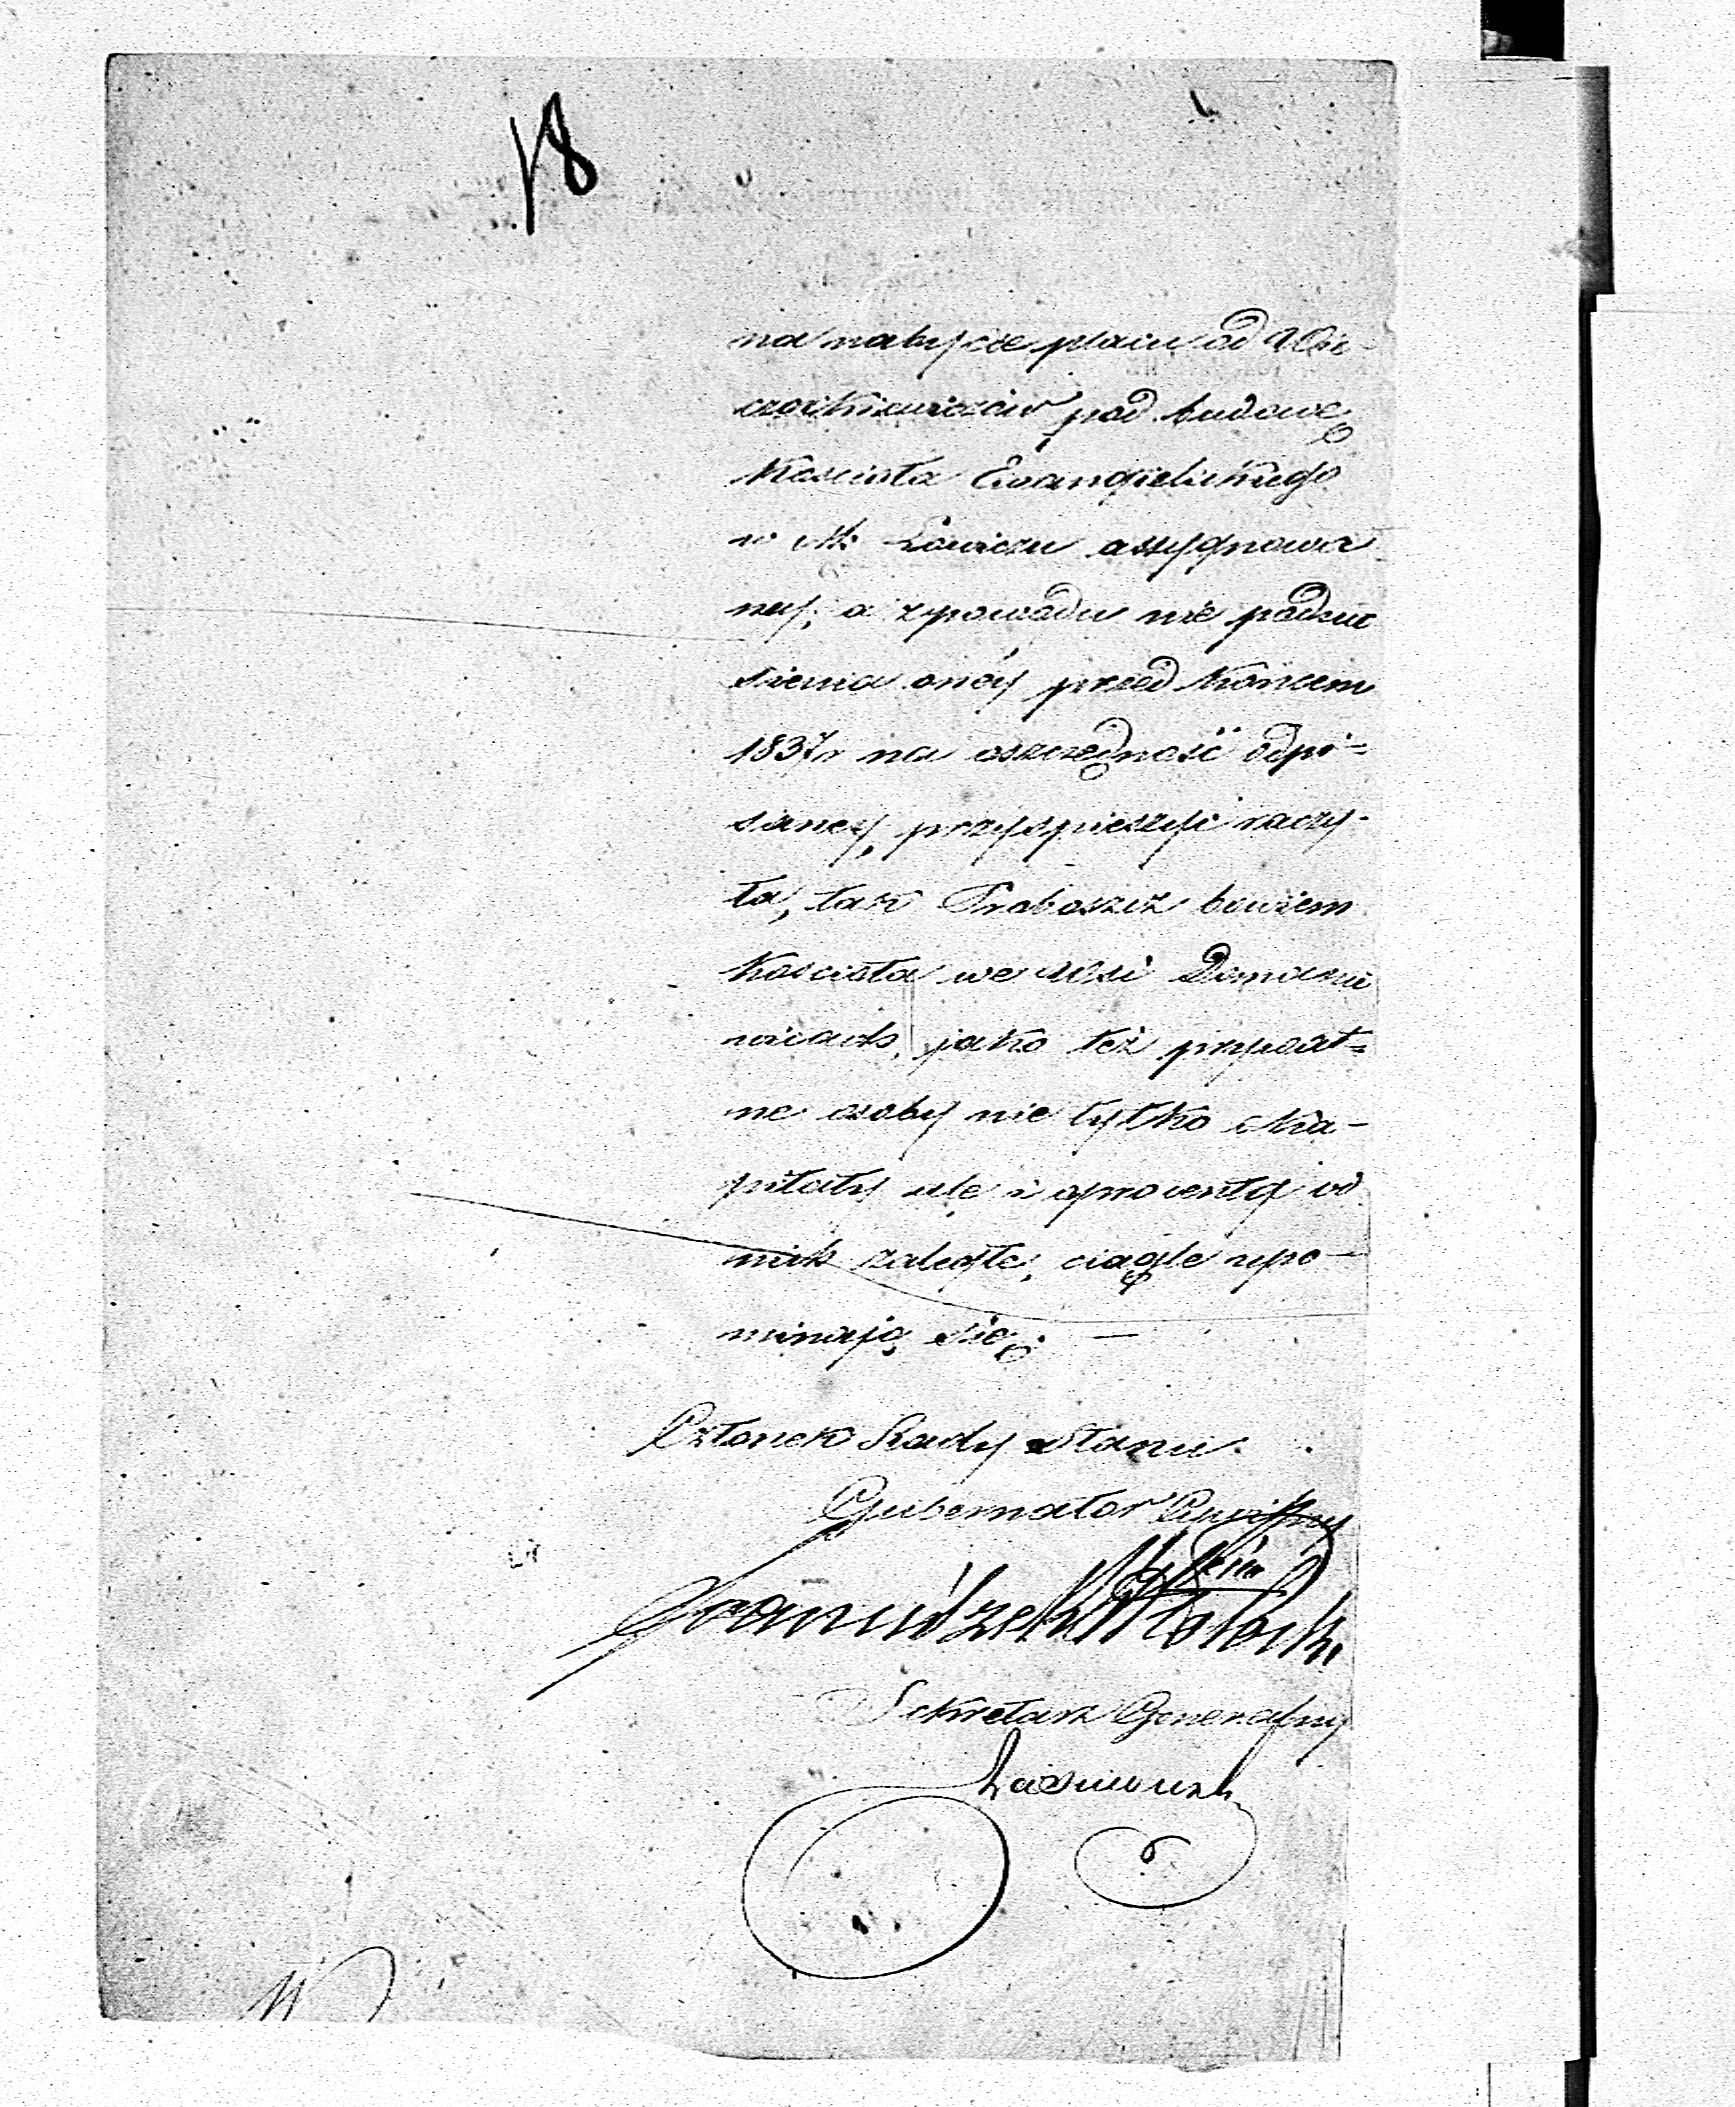 18
na nabycie placu od Wie-
czorkiewiczów pod budowę
Kościoła Ewangielickiego
w M. Łowiczu assygnowa
néy, a z powodu nie podnie
sienia onéy przed końcem
1837 r na oszczędność odpi=
sanéy, przyspieszyć raczy-
ła, tak Proboszcz bowiem
Kościoła we Wsi Domanie
wicach, jako też prywat=
ne osoby nie tylko o Ka-
pitały ale i o procenta od
nich zaległe, ciągle upo-
minają się. —
Członek Rady Stanu
Gubernator Cywilny
Sekretarz Generalny